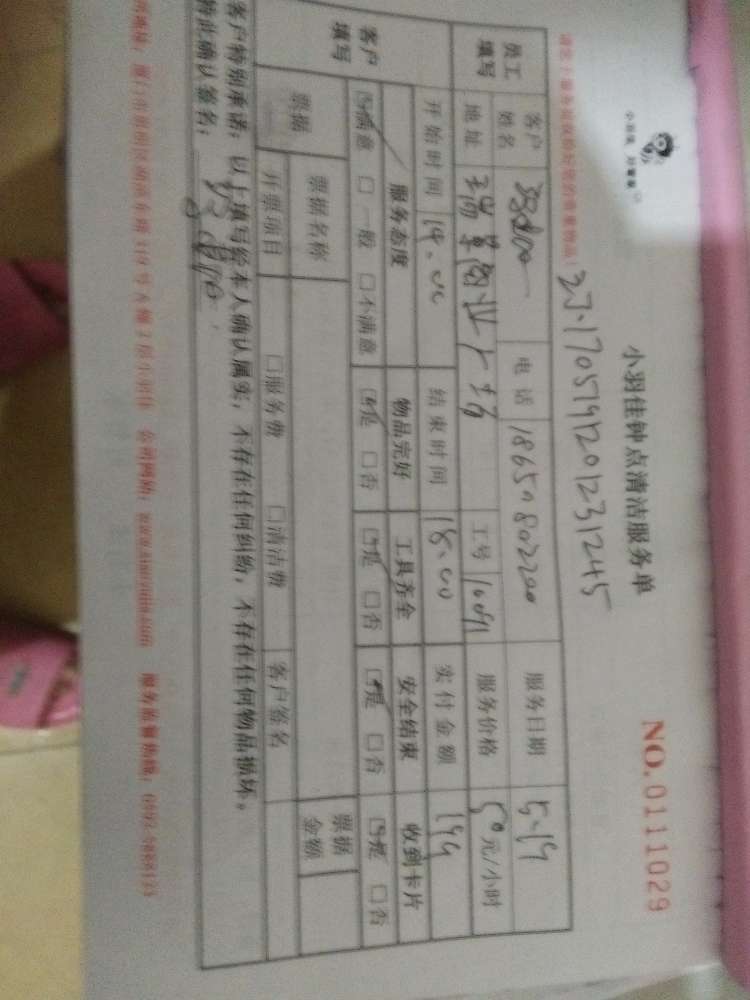 小羽佳钟点清洁服务单
NO.0111029
27.170519201231245
员工填写 客户姓名 电话 18650802200 服务日期 5.19
地址 瑞景商业广场 工号 10091 服务价格 50元/小时
开始时间 14.00 结束时间 18.00 实付金额 199
客户填写 服务态度 物品完好 工具齐全 安全结束 收到卡片
☑满意 □一般 □不满意 ☑是 □否 ☑是 □否 ☑是 □否 ☑是 □否
票据 票据名称 票据金额
开票项目 □服务费 □清洁费 客户签名
客户特别承诺：以上填写经本人确认属实，不存在任何纠纷，不存在任何物品损坏。
特此确认签名：
公司网站：www.xiaoyujia.com 服务监督热线：